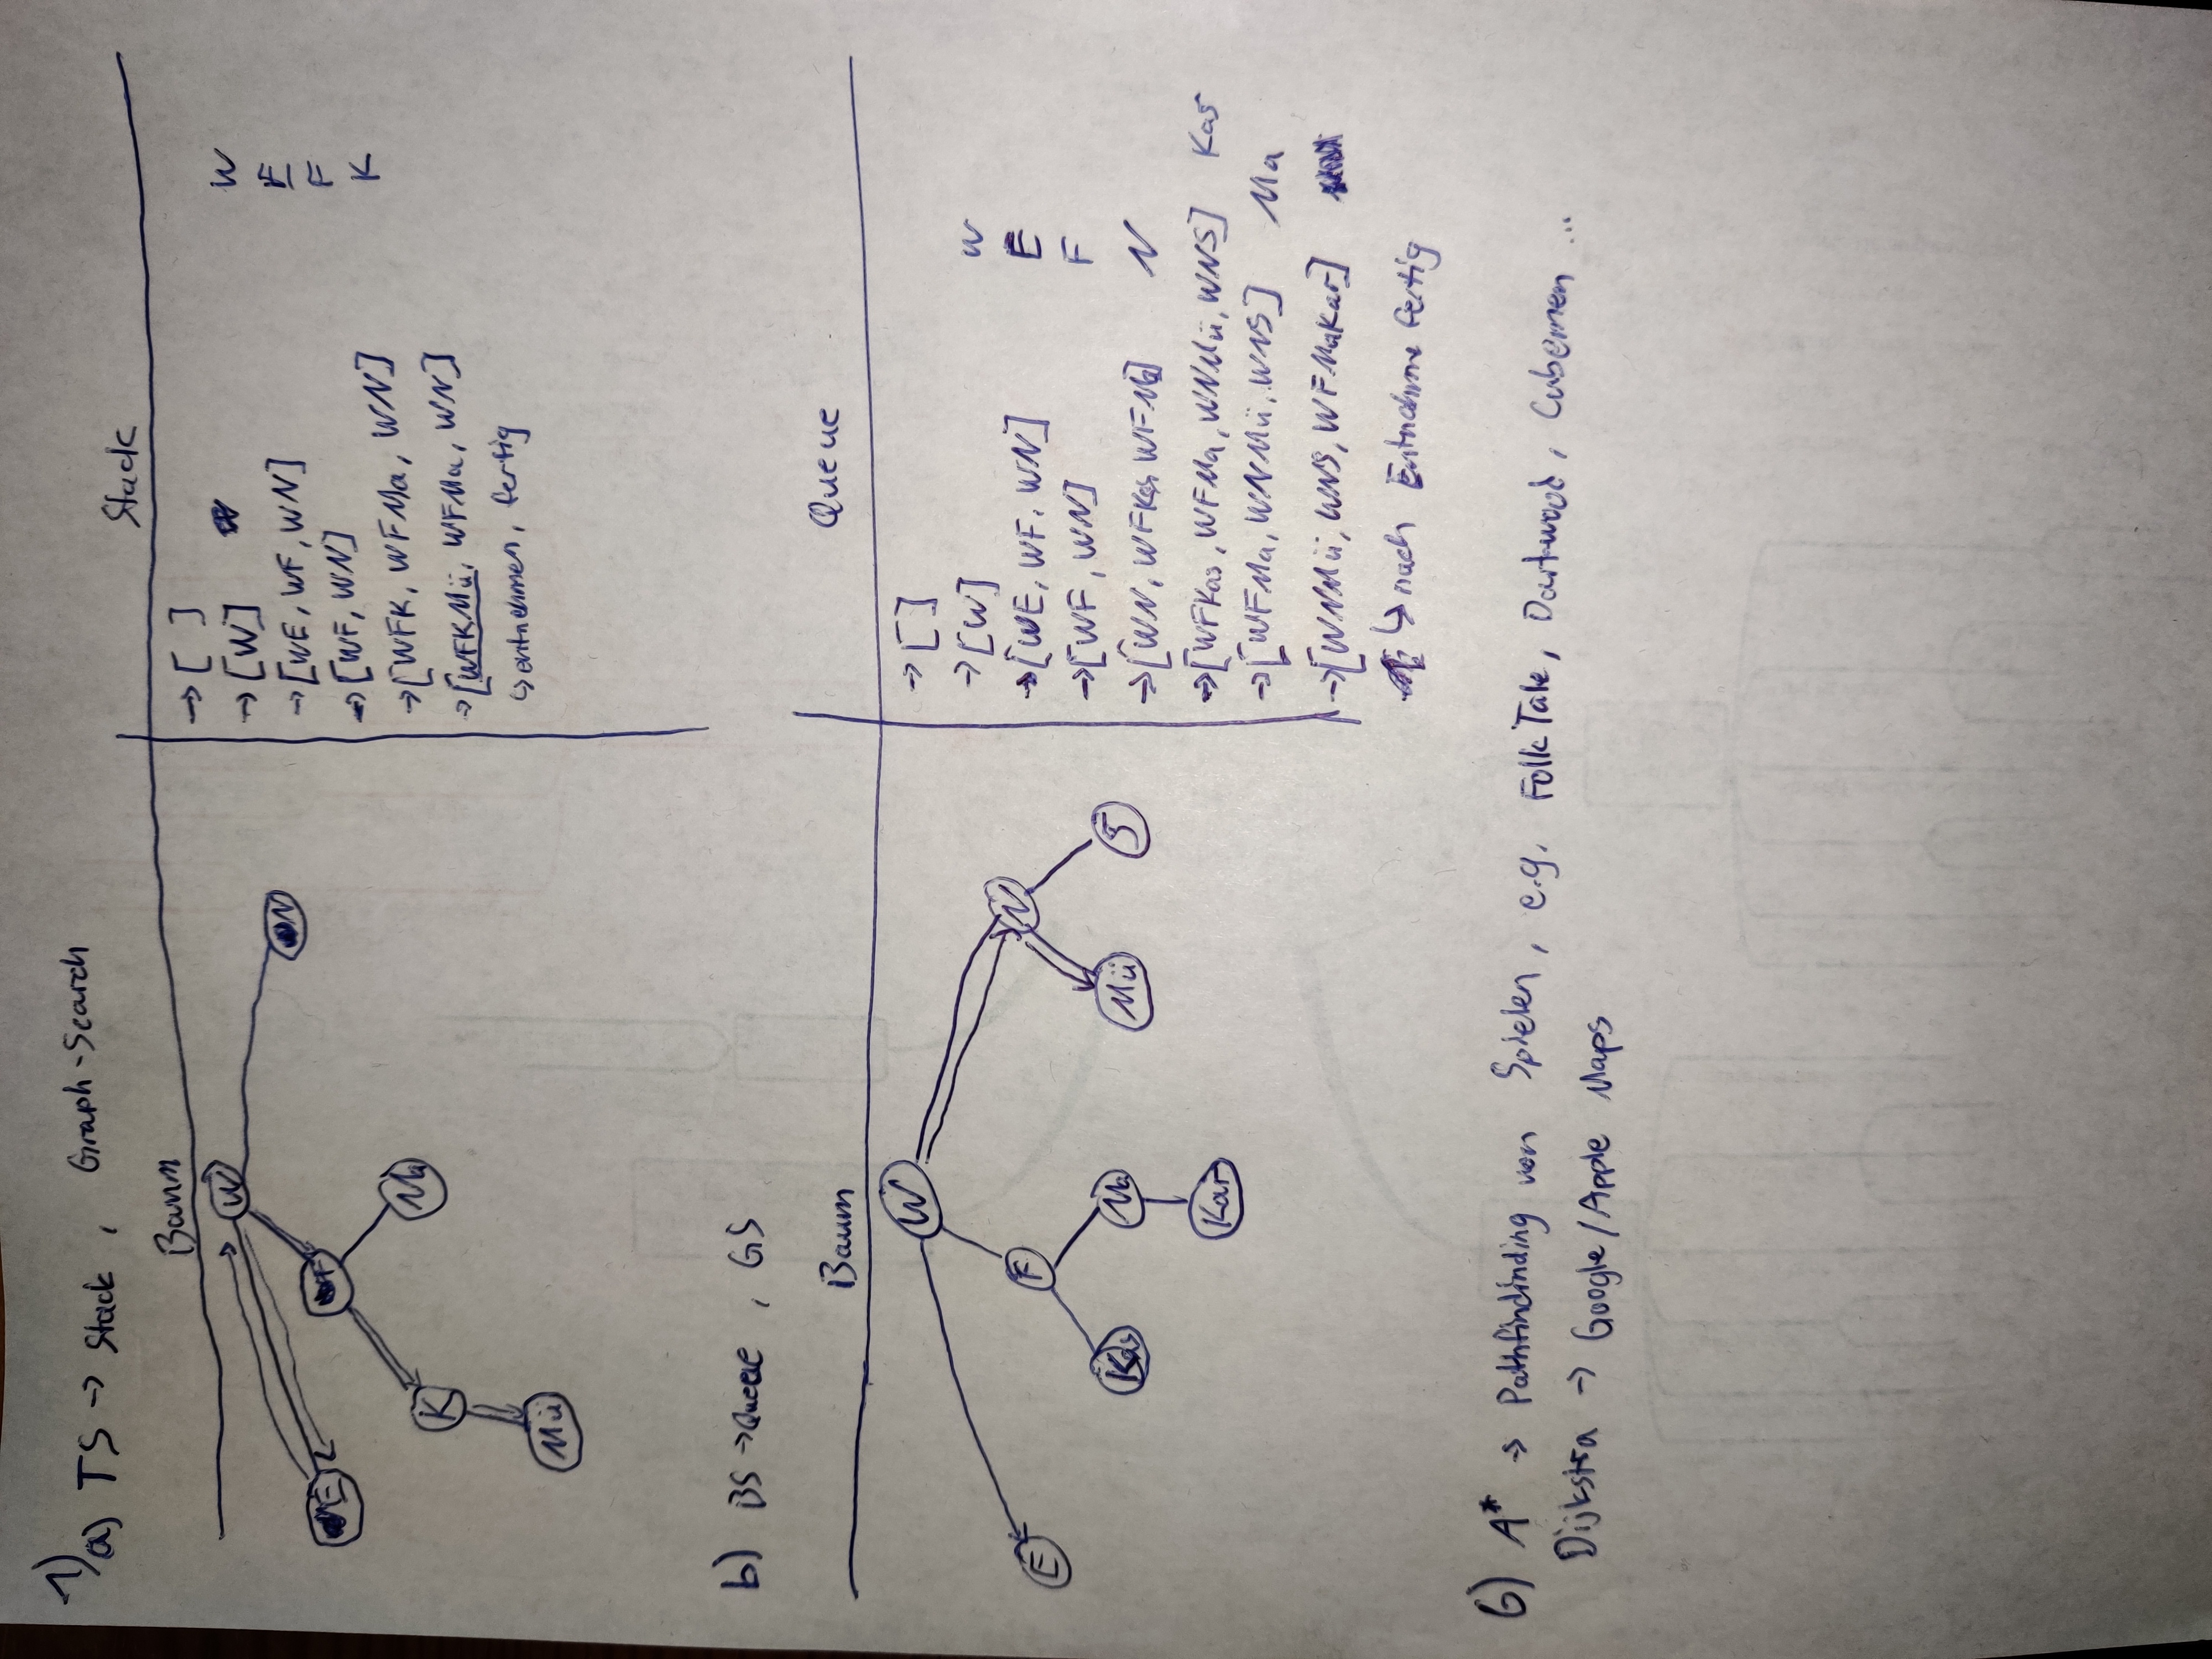 1)
a) TS → Stack , Graph-Search
Baum
Stack
W
E
F
N
K
Ma
Mü
→ [ ]
→ [W] W
→ [WE, WF, WN] E
→ [WF, WN] F
→ [WFK, WFMa, WN] K
→ [WFKMü, WFMa, WN]
↳ entnehmen, fertig
b) BS → Queue , GS
Baum
Queue
W
E
F
N
Kas
Ma
Mü
S
Kar
→ [ ]
→ [W] W
→ [WE, WF, WN] E
→ [WF, WN] F
→ [WN, WFKas, WFMa] N
→ [WFKas, WFMa, WNMü, WNS] Kas
→ [WFMa, WNMü, WNS] Ma
→ [WNMü, WNS, WFMaKar]
↳ nach Entnahme fertig
6) A* → Pathfindinding von Spielen, e.g. Folk Tale, Cubemen ...
Dijkstra → Google/Apple Maps